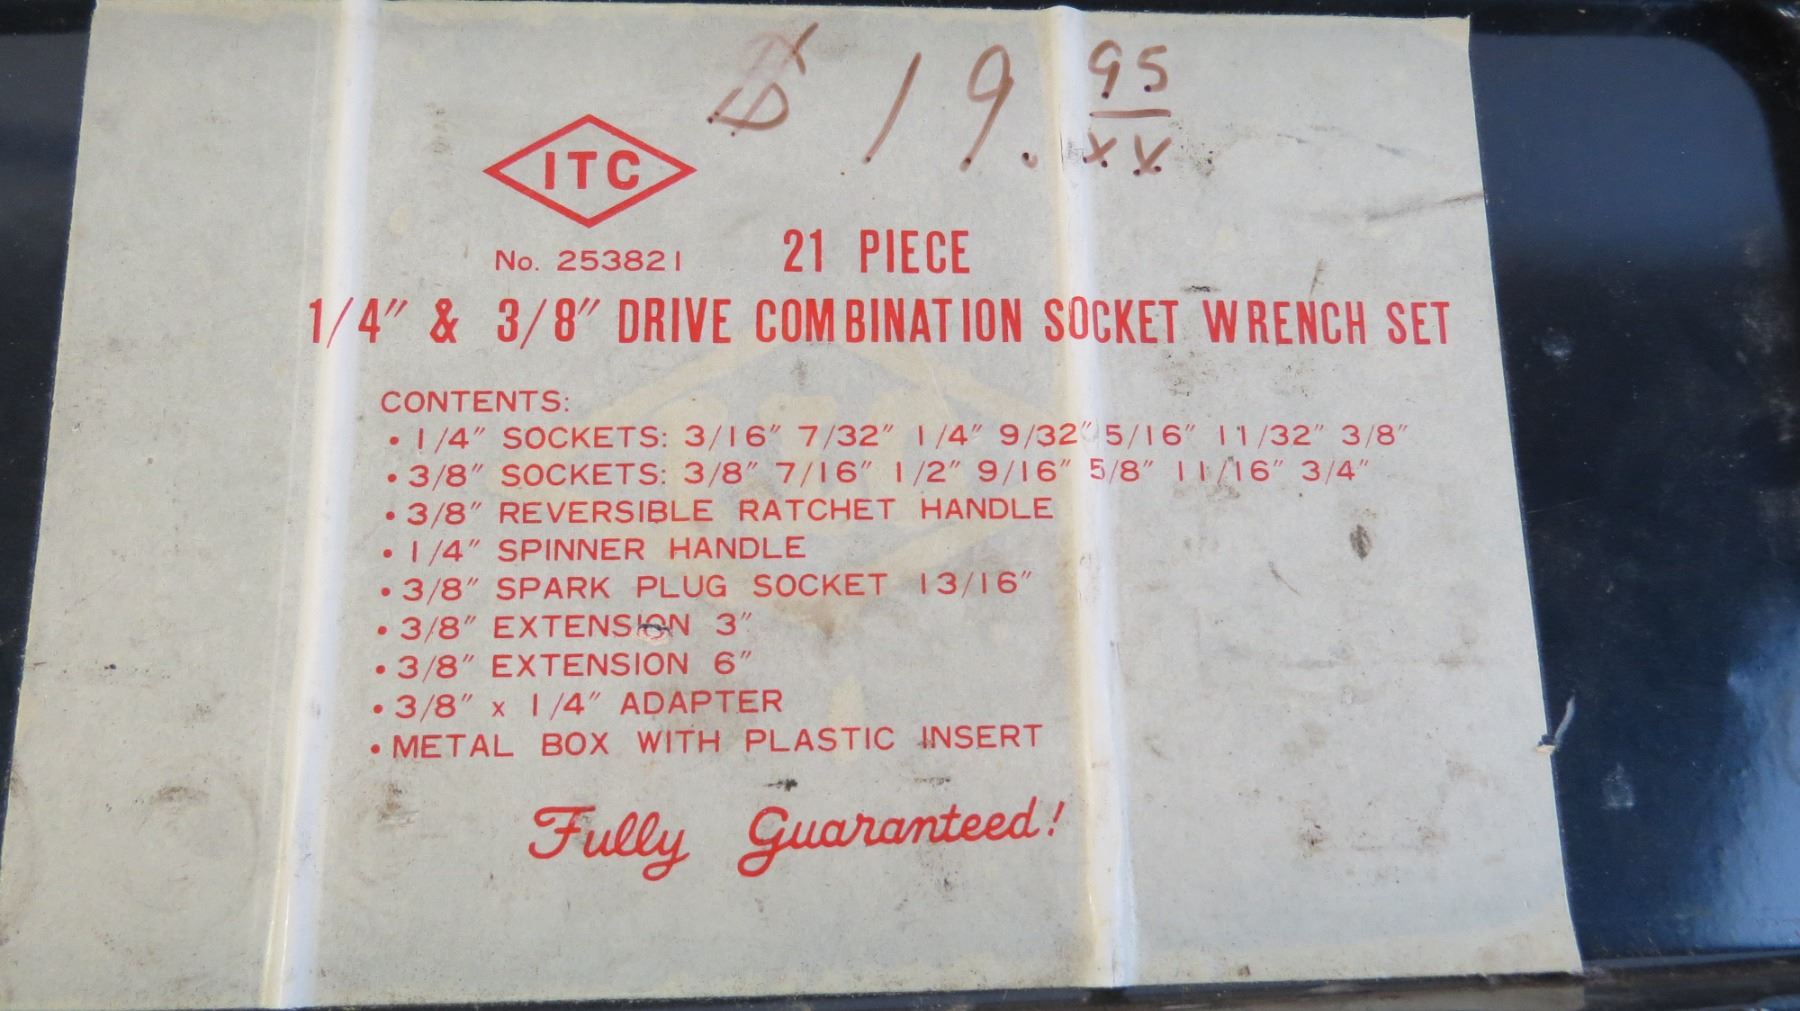 $ 19.95
xx
ITC
No. 253821
21 PIECE
1/4" & 3/8" DRIVE COMBINATION SOCKET WRENCH SET
CONTENTS:
• 1/4" SOCKETS: 3/16" 7/32" 1/4" 9/32" 5/16" 11/32" 3/8"
• 3/8" SOCKETS: 3/8" 7/16" 1/2" 9/16" 5/8" 11/16" 3/4"
• 3/8" REVERSIBLE RATCHET HANDLE
• 1/4" SPINNER HANDLE
• 3/8" SPARK PLUG SOCKET 13/16"
• 3/8" EXTENSION 3"
• 3/8" EXTENSION 6"
• 3/8" x 1/4" ADAPTER
• METAL BOX WITH PLASTIC INSERT
Fully Guaranteed!